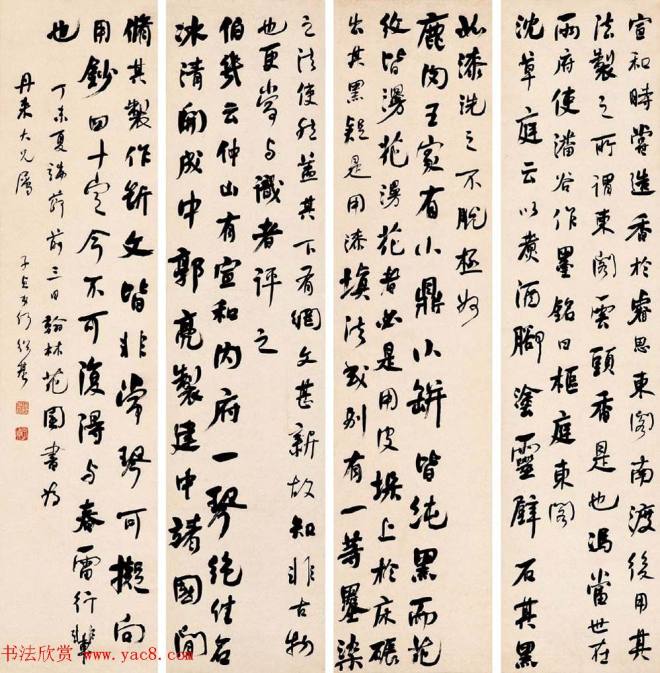 宣和時嘗造香於睿思東閣南渡後用其
法製之所謂東閣雲頭香是也馮當世在
兩府使潘谷作墨銘曰樞庭東閣
沈草庭云以煮酒腳塗靈壁石其黑
如漆洗之不脫極妙
鹿肉王家有小鼎小缾皆純黑而花
紋皆漫花漫花者必是用皮垛上於床碾
出其黑疑是用漆填法或別有一等墨染
之法使然蓋其下有細文甚新故知非古物
也更當與識者評之
伯幾云仲山有宣和內府一琴絕佳名
冰清開成中郭亮製建中靖國間
脩其製作斷文皆非常琴可擬向
用鈔四十定今不可復得與春雷行輩
也
丁未夏 三日翰林花園書為
丹来大兄屬
書法欣賞 www.yac8.com